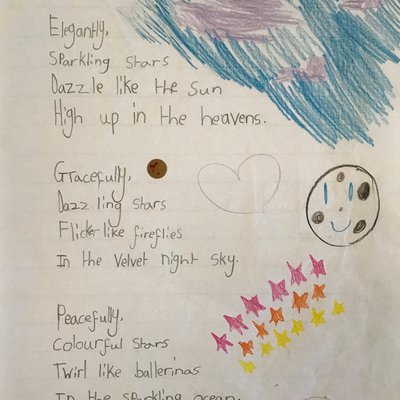 Elegantly,
Sparkling stars
Dazzle like the sun
High up in the heavens.
Gracefully,
Dazzling stars
Flicker like fireflies
In the velvet night sky.
Peacefully,
Colourful stars
Twirl like ballerinas
In the sparkling ocean.